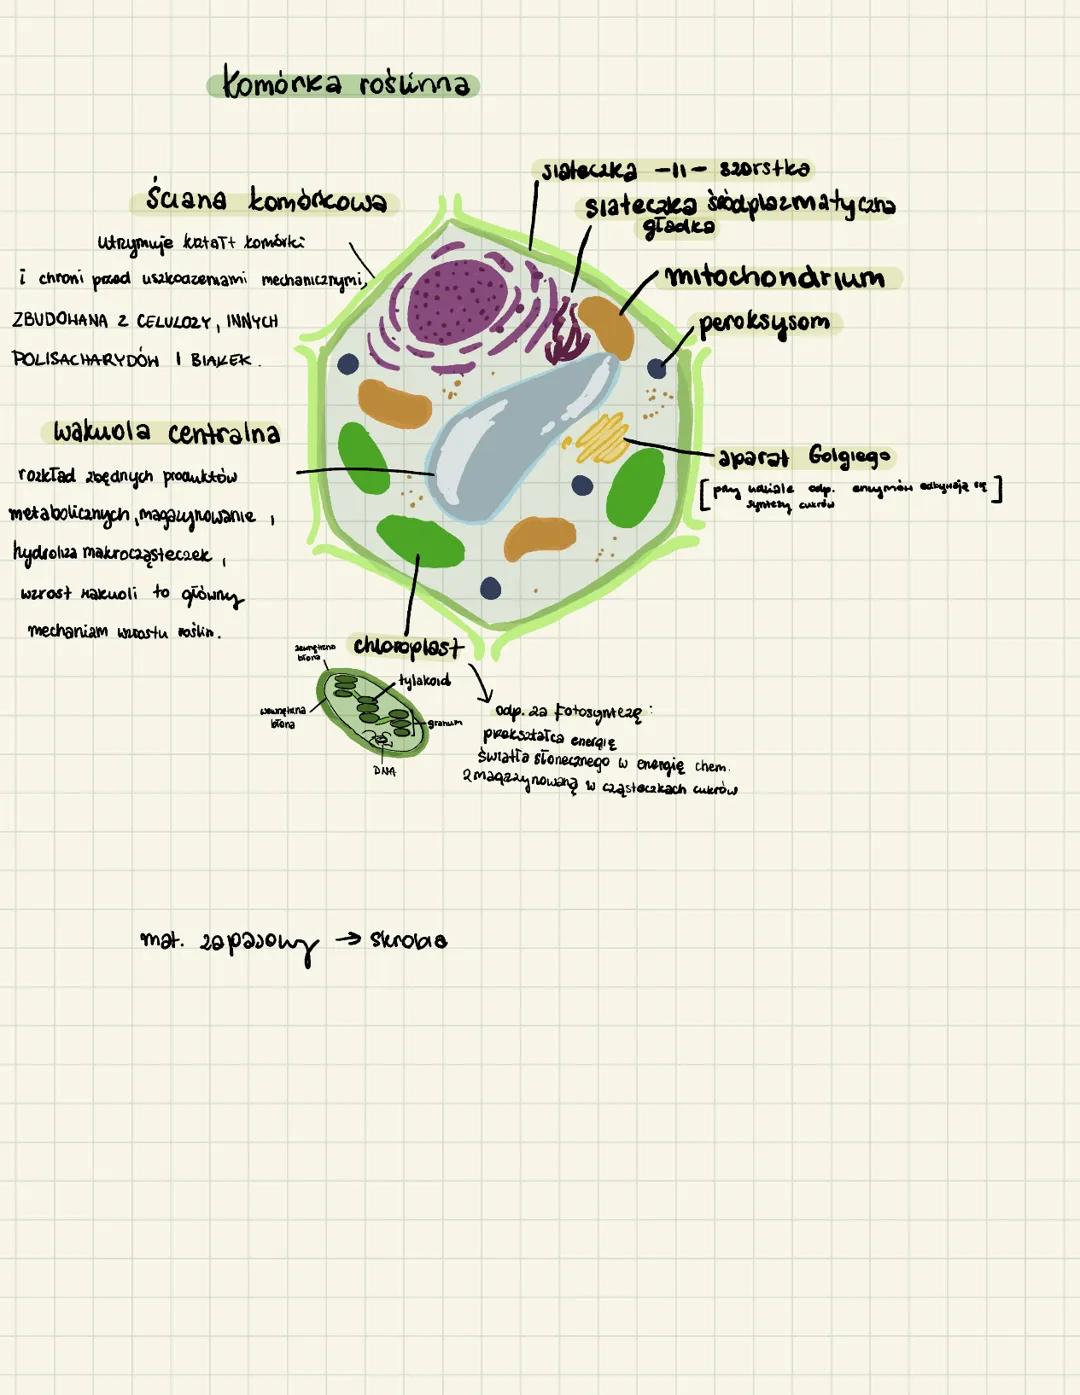 komórka roślinna
siateczka -11- szorstka
siateczka śródplazmatyczna
gładka
mitochondrium
peroksysom
aparat Golgiego
[przy udziale odp. enzymów odbywają się
syntezy cukrów]
ściana komórkowa
utrzymuje kształt komórki
i chroni przed uszkodzeniami mechanicznymi,
ZBUDOWANA Z CELULOZY, INNYCH
POLISACHARYDÓW I BIAŁEK.
wakuola centralna
rozkład zbędnych produktów
metabolicznych, magazynowanie,
hydroliza makrocząsteczek,
wzrost wakuoli to główny
mechanizm wzrostu roślin.
chloroplast
zewnętrzna
błona
tylakoid
wewnętrzna
błona
granum
DNA
odp. za fotosyntezę:
przekształca energię
światła słonecznego w energię chem.
zmagazynowaną w cząsteczkach cukrów
mat. zapasowy → skrobia